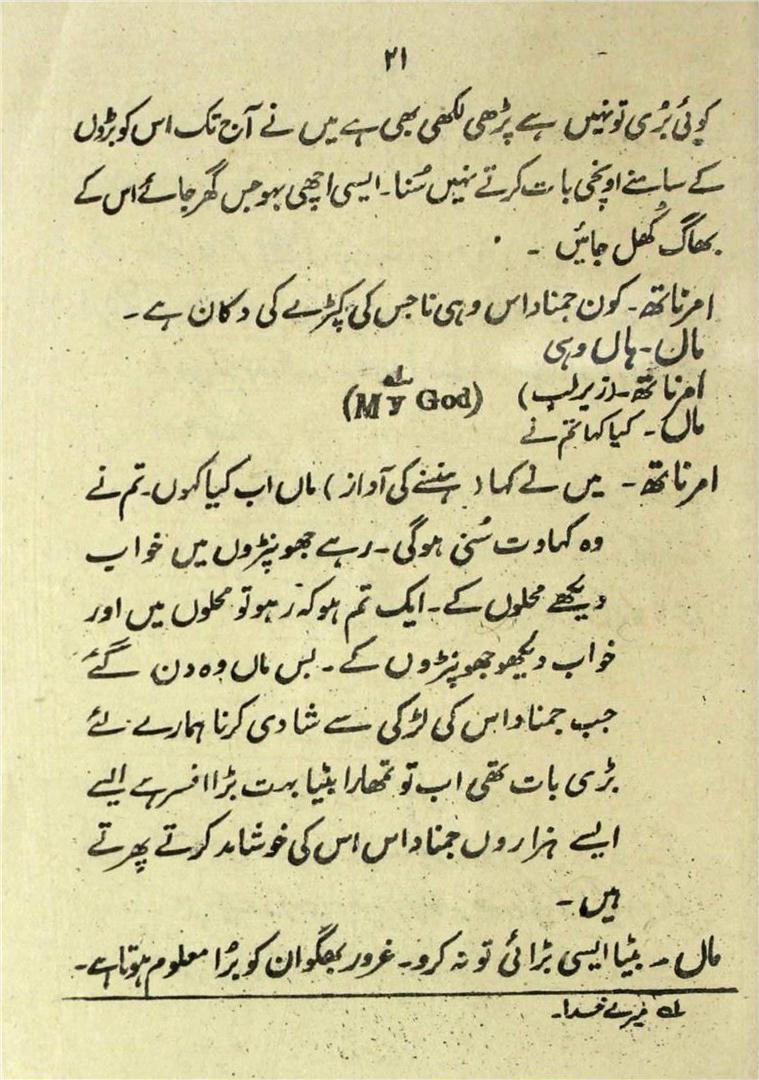 ۲۱
کوئی بُری تو نہیں ہے پڑھی لکھی بھی ہے میں نے آج تک اس کو بڑوں
کے سامنے اونچی بات کرتے نہیں سُنا۔ ایسی اچھی بہو جس گھر جائے اس کے
بھاگ کُھل جائیں ۔
امرناتھ۔ کون جمنا داس وہی نا جس کی کپڑے کی دکان ہے ۔
ماں۔ ہاں وہی
امرناتھ۔ (زیر لب) (My God) ؎۱
ماں۔ کیا کہا تم نے
امرناتھ ۔ میں نے کہا ( ہنسنے کی آواز ) ماں اب کیا کہوں۔ تم نے
وہ کہاوت سُنی ہوگی ۔ رہے جھونپڑوں میں خواب
دیکھے محلوں کے ۔ ایک تم ہو کہ رہو تو محلوں میں اور
خواب دیکھو جھونپڑوں کے ۔ بس ماں وہ دن گئے
جب جمنا داس کی لڑکی سے شادی کرنا ہمارے لئے
بڑی بات تھی اب تو تمھارا بیٹا بہت بڑا افسر ہے ایسے
ایسے ہزاروں جمنا داس اس کی خوشامد کرتے پھرتے
ہیں ۔
ماں ۔ بیٹا ایسی بڑائی تو نہ کرو ۔ غرور بھگوان کو بُرا معلوم ہوتا ہے ۔
؎۱ میرے خدا ۔